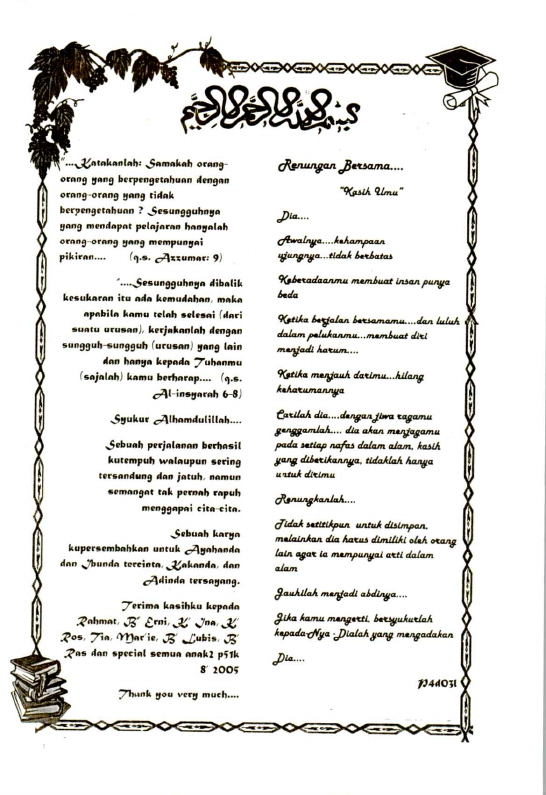 بسم الله الرحمن الرحيم
"....Katakanlah: Samakah orang-
orang yang berpengetahuan dengan
orang-orang yang tidak
berpengetahuan ? Sesungguhnya
yang mendapat pelajaran hanyalah
orang-orang yang mempunyai
pikiran.... (q.s. Azzumar: 9)
"....Sesungguhnya dibalik
kesukaran itu ada kemudahan, maka
apabila kamu telah selesai (dari
suatu urusan), kerjakanlah dengan
sungguh-sungguh (urusan) yang lain
dan hanya kepada Tuhanmu
(sajalah) kamu berharap.... (q.s.
Al-insyarah 6-8)
Syukur Alhamdulillah....
Sebuah perjalanan berhasil
kutempuh walaupun sering
tersandung dan jatuh, namun
semangat tak pernah rapuh
menggapai cita-cita.
Sebuah karya
kupersembahkan untuk Ayahanda
dan Ibunda tercinta, Kakanda, dan
Adinda tersayang.
Terima kasihku kepada
Rahmat, B' Erni, K' Ina, K'
Ros, Tia, Mar'ie, B' Lubis, B'
Ras dan special semua anak2 p51k
8' 2005
Thank you very much....
Renungan Bersama....
"Kasih Ilmu"
Dia....
Awalnya....kehampaan
ujungnya...tidak berbatas
Keberadaanmu membuat insan punya
beda
Ketika berjalan bersamamu....dan luluh
dalam pelukanmu...membuat diri
menjadi harum....
Ketika menjauh darimu...hilang
keharumannya
Carilah dia....dengan jiwa ragamu
genggamlah.... dia akan menjagamu
pada setiap nafas dalam alam, kasih
yang diberikannya, tidaklah hanya
untuk dirimu
Renungkanlah....
Tidak setitikpun untuk disimpan,
melainkan dia harus dimiliki oleh orang
lain agar ia mempunyai arti dalam
alam
Jauhilah menjadi abdinya....
Jika kamu mengerti, bersyukurlah
kepada-Nya - Dialah yang mengadakan
Dia....
P4d03l